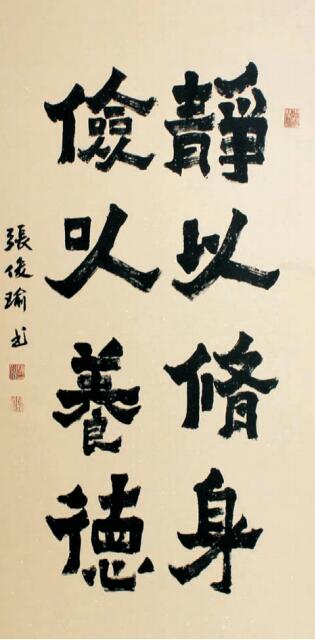 靜以脩身
儉以養德
張俊瑜书